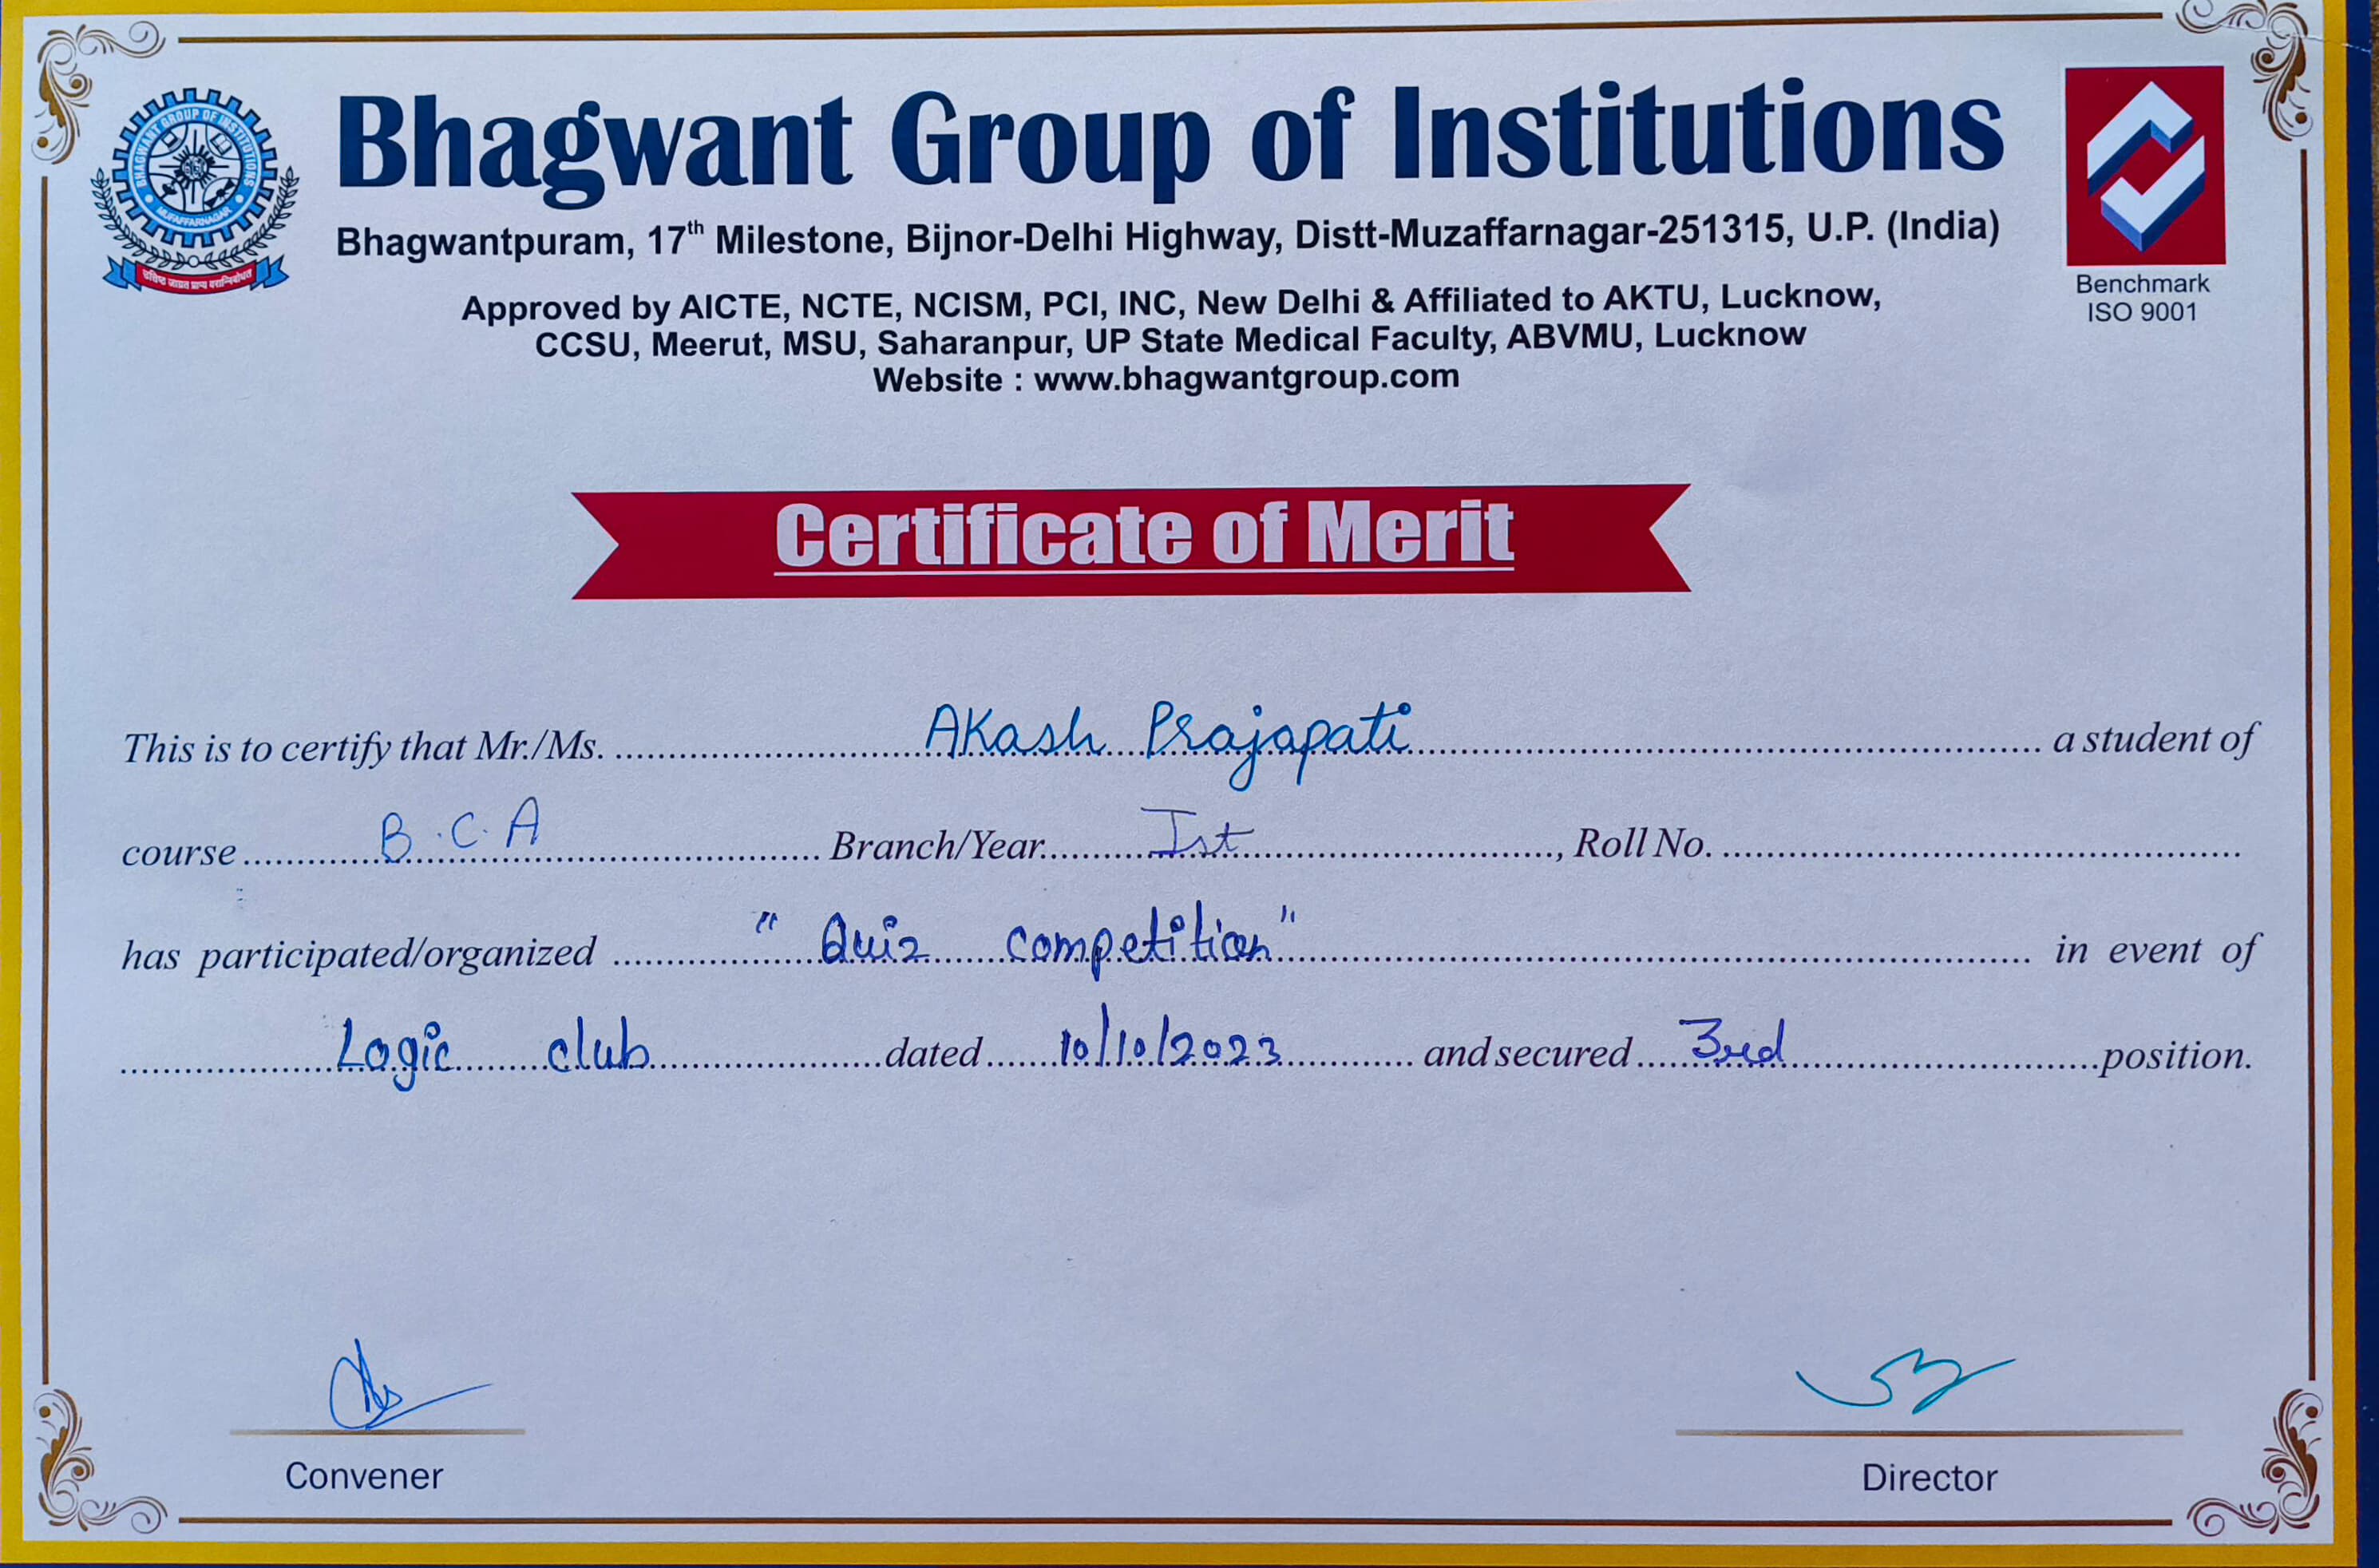 BHAGWANT GROUP OF INSTITUTIONS
MUZAFFARNAGAR
उत्तिष्ठ जाग्रत प्राप्य वरान्निबोधत
Bhagwant Group of Institutions
Bhagwantpuram, 17th Milestone, Bijnor-Delhi Highway, Distt-Muzaffarnagar-251315, U.P. (India)
Approved by AICTE, NCTE, NCISM, PCI, INC, New Delhi & Affiliated to AKTU, Lucknow,
CCSU, Meerut, MSU, Saharanpur, UP State Medical Faculty, ABVMU, Lucknow
Website : www.bhagwantgroup.com
Benchmark
ISO 9001
Certificate of Merit
This is to certify that Mr./Ms. Akash Prajapati a student of
course B.C.A Branch/Year Ist, Roll No.
has participated/organized "Quiz competition" in event of
Logic club dated 10/10/2023 and secured 3rd position.
Convener
Director